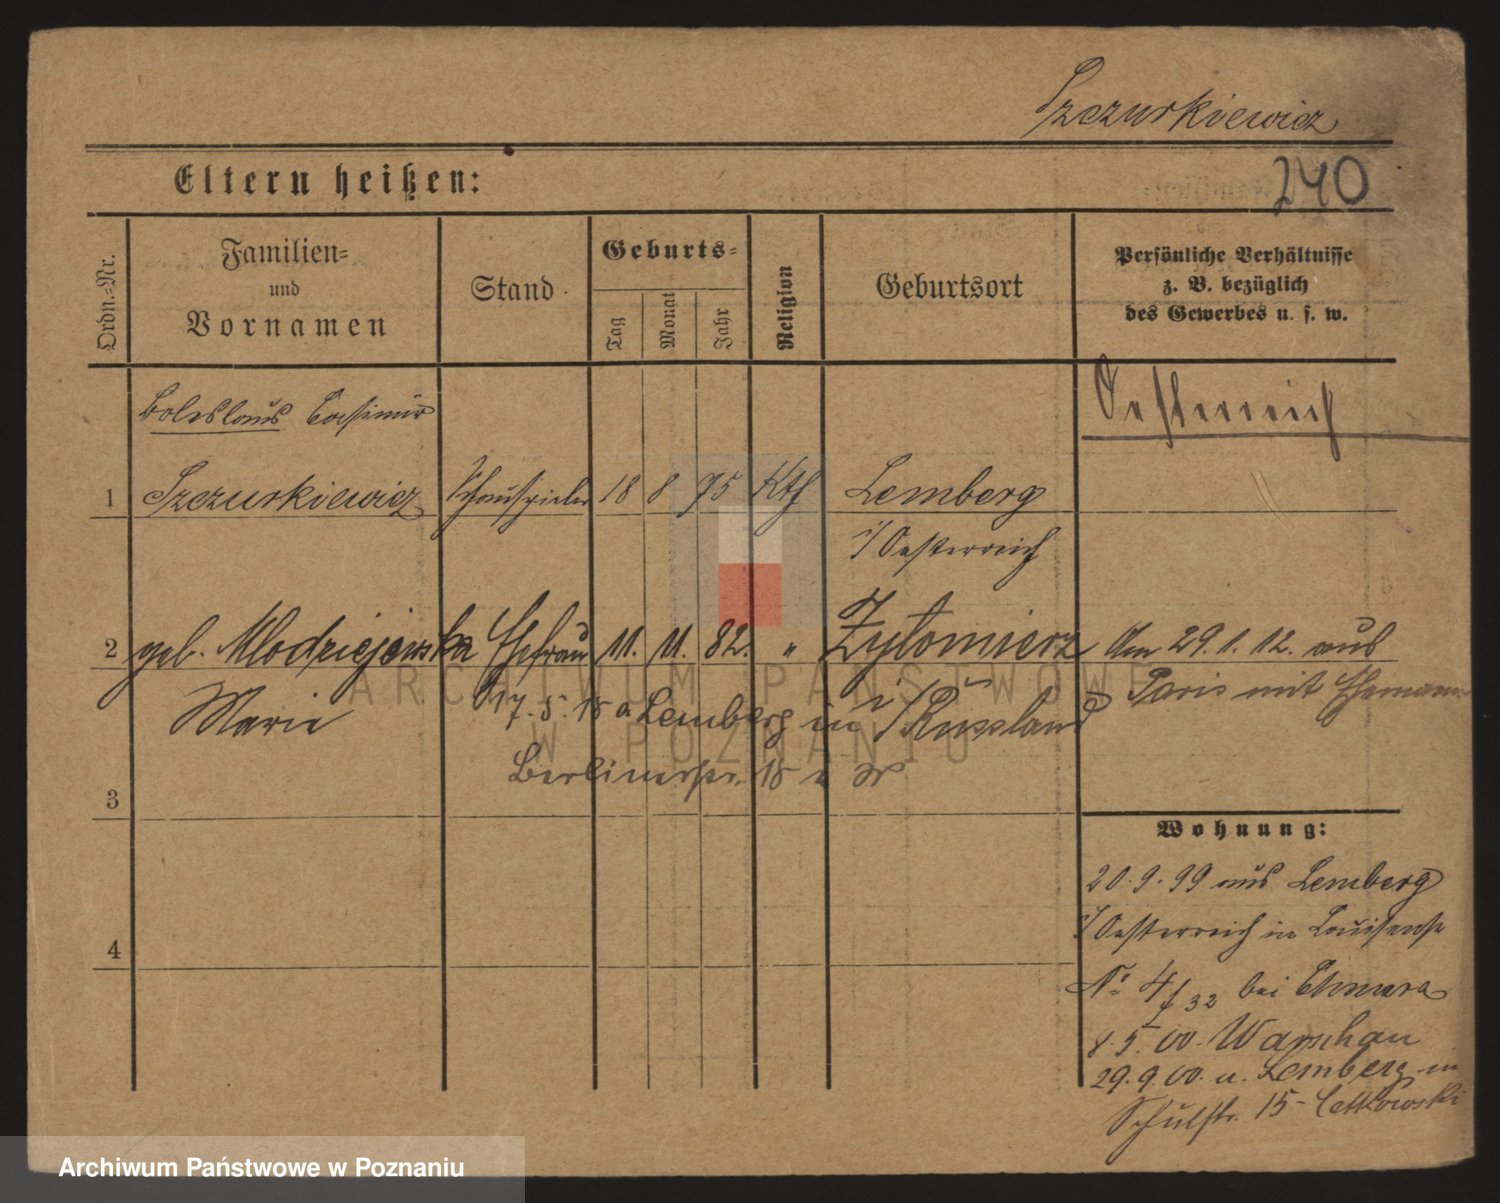 Szczurkiewicz
240
Eltern heißen:
Ordn.-Nr.
Familien-
und
Vornamen
Stand
Geburts-
Tag
Monat
Jahr
Religion
Geburtsort
Persönliche Verhältnisse
z. B. bezüglich
des Gewerbes u. s. w.
Boleslaus Casimir
Oesterreich
1 Szczurkiewicz Schauspieler 18 8 75 Kth Lemberg
i/Oesterreich
2 geb. Mlodziejewska Ehefrau 11. 11. 82. " Zytomierz
Marie
i/Russland
17.5.15 a. Lemberg in
Berlinerstr. 15
Am 29.1.12. aus
Paris mit Ehemann
3
4
Wohnung:
20.9.99 aus Lemberg
i/Oesterreich in Louisenstr
No 4 f 32 bei Chmara
8.5.00. Warschau
29.9.00. u. Lemberg in
Schulstr. 15-
ARCHIWUM PAŃSTWOWE
W POZNANIU
Archiwum Państwowe w Poznaniu